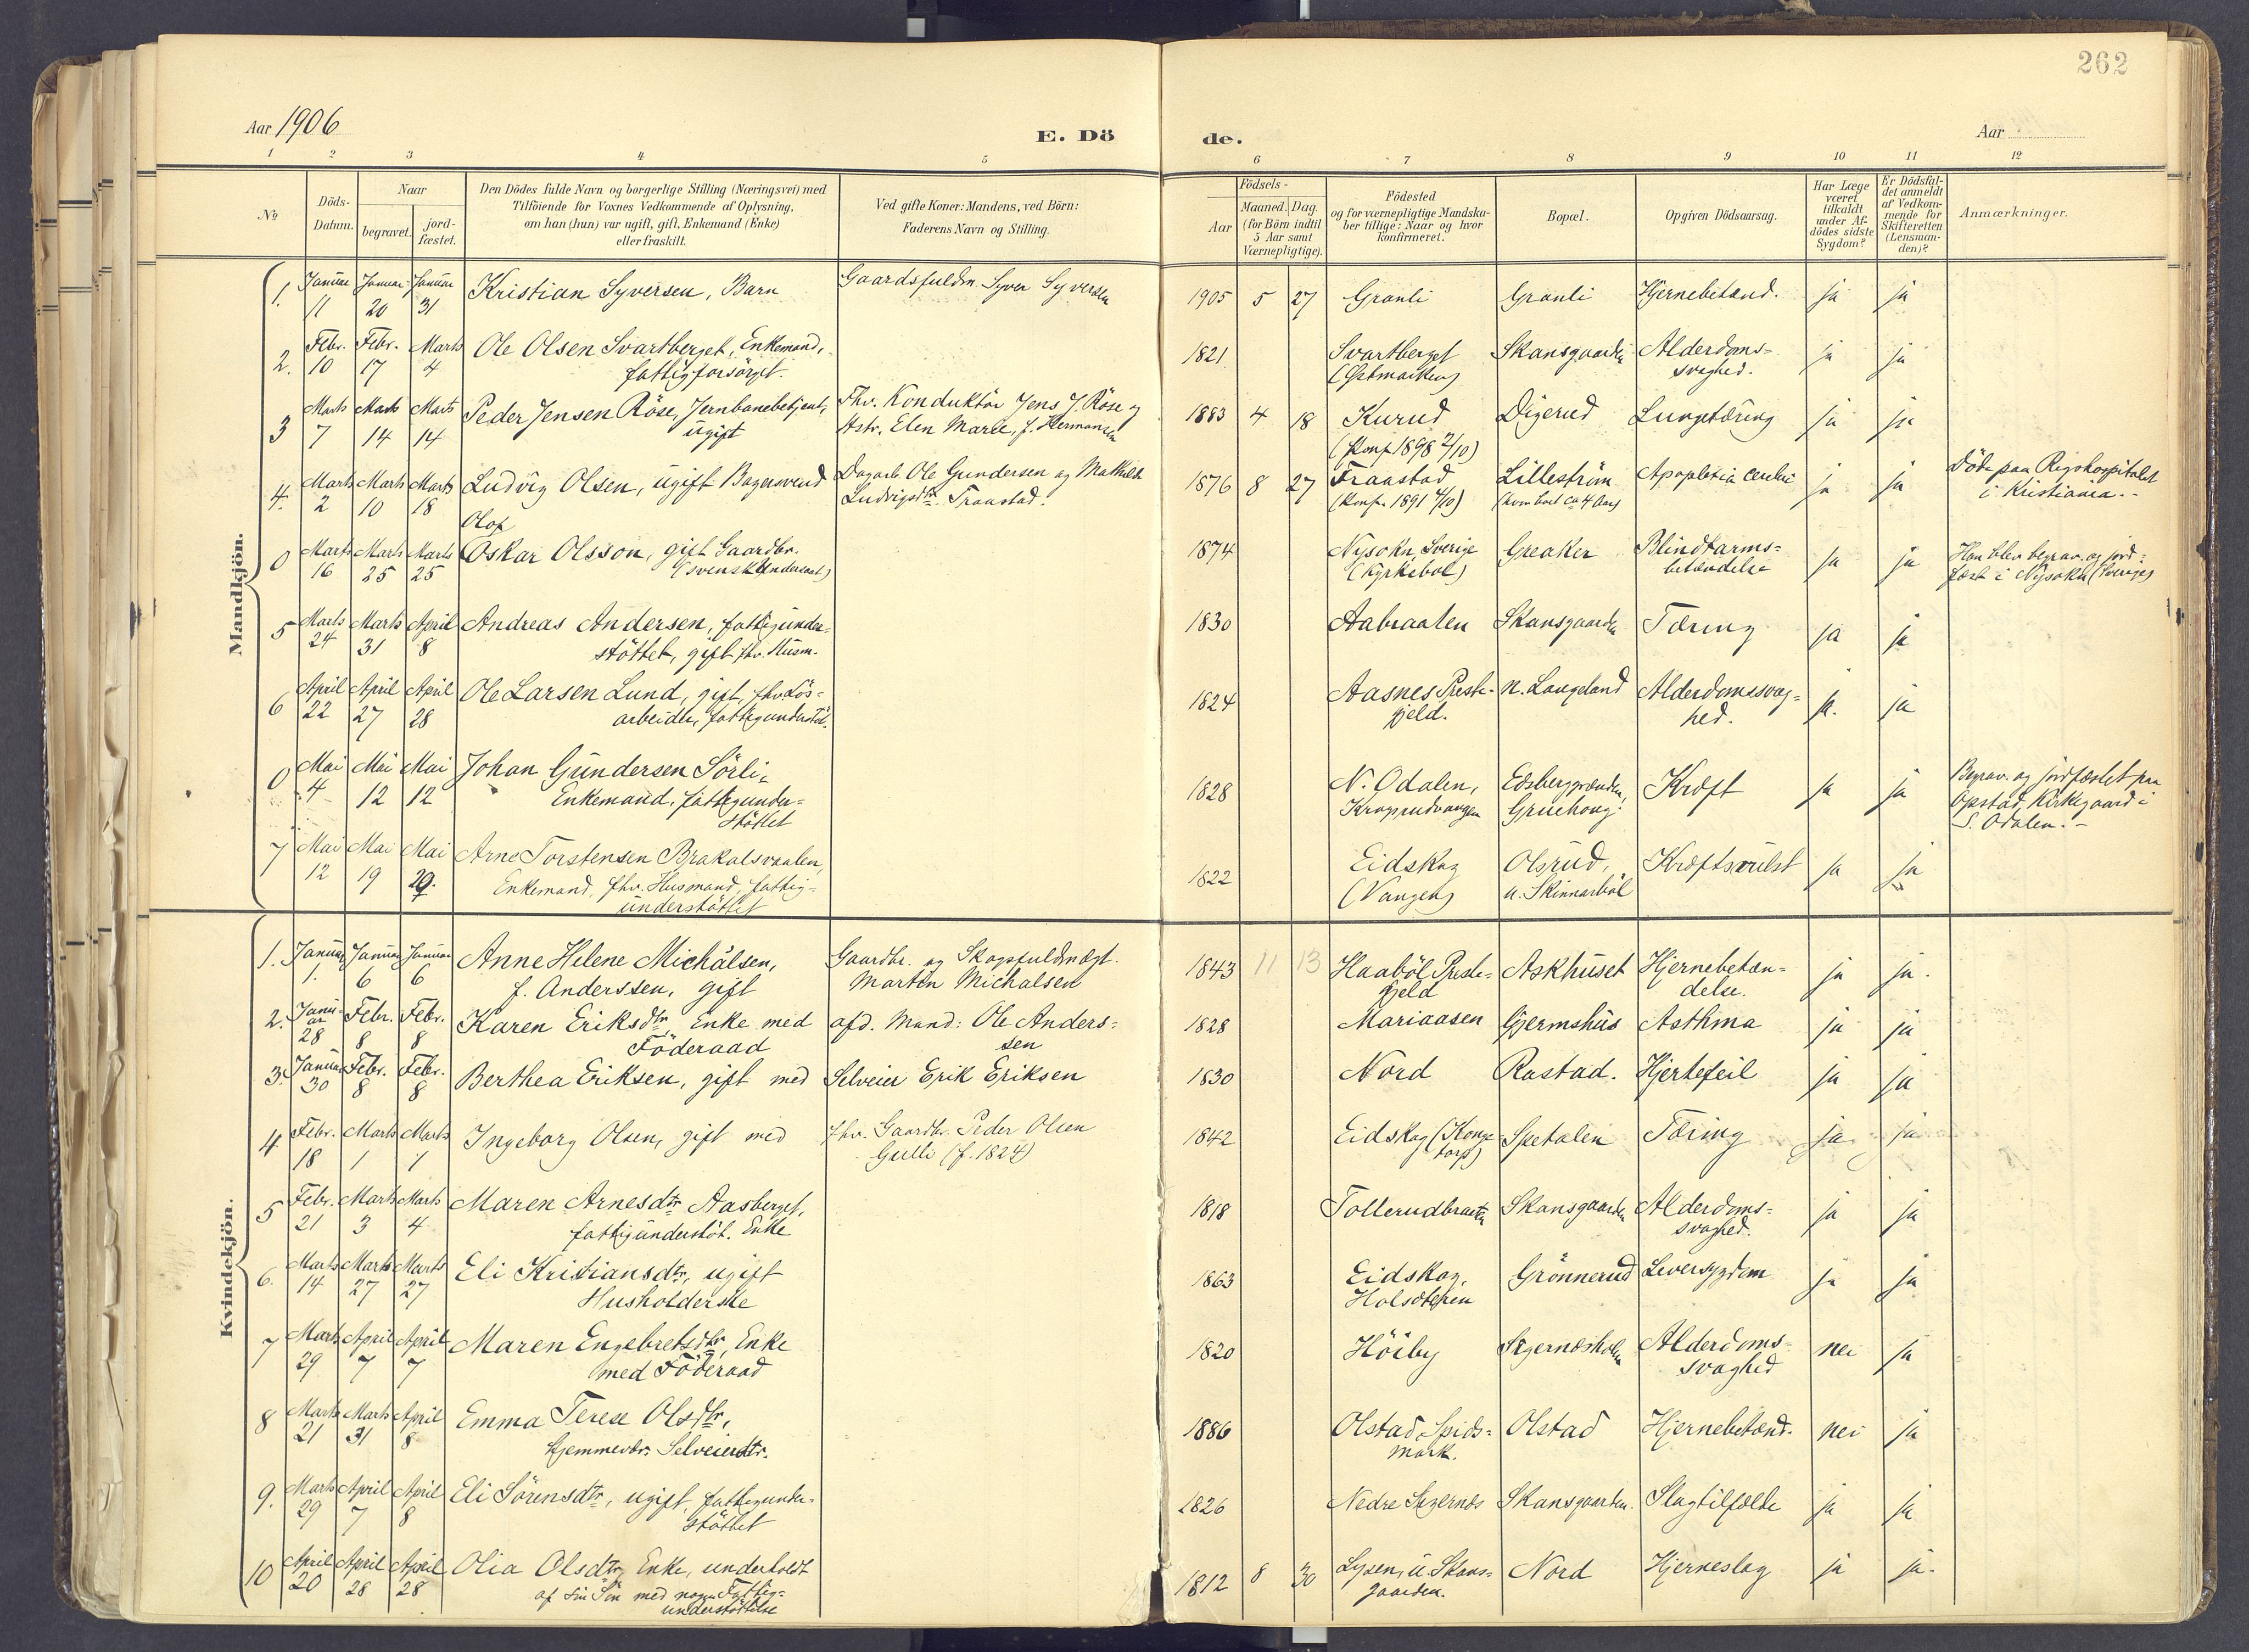 262
Aar 1906
E. Dö
de.
Aar
1 2 3 4 5 6 7 8 9 10 11 12
No
Döds-
Datum.
Naar
begravet.
jord-
fæstet.
Den Dödes fulde Navn og borgerlige Stilling (Næringsvei) med
Tilföiende for Voxnes Vedkommende af Oplysning,
om han (hun) var ugift, gift, Enkemand (Enke)
eller fraskilt.
Ved gifte Koner: Mandens, ved Börn:
Faderens Navn og Stilling.
Födsels-
Aar
Maaned. Dag.
(for Börn indtil
5 Aar samt
Værnepligtige).
Födested
og for værnepligtige Mandska-
ber tillige: Naar og hvor
konfirmeret.
Bopæl.
Opgiven Dödsaarsag.
Har Læge
været
tilkaldt
under Af-
dödes sidste
Sygdom?
Er Dödsfal-
det anmeldt
af Vedkom-
mende for
Skifteretten
(Lensman-
den)?
Anmærkninger.
Mandkjön.
1. Januar 11 Januar 20 Januar 31 Kristian Syversen, Barn Gaardsfuldm. Syver Syversen 1905 5 27 Granli Granli Hjernebetænd. ja ja
2. Febr. 10 Febr. 17 Marts 4 Ole Olsen Svartberget, Enkemand, 1821 Svartberget Skansgaarden Alderdoms= ja ja
fattigforsörget. (Östmarken) svaghed.
3 Marts 7 Marts 14 Marts 14 Peder Jensen Röse, Jernbanebetjent, Fhv. Konduktör Jens J. Röse og 1883 4 18 Kurud Digerud Lungetæring ja ja
ugift Hstr. Elen Marie, f. Hermansen (Konf 1898 2/10)
4. Marts 2 Marts 10 Marts 18 Ludvig Olsen, ugift Bagersvend Dagarb. Ole Gundersen og Mathilde 1876 8 27 Fraastad Lilleström Apoplexia cerebri ja ja Döde paa Rigshospitalet
Ludvigsdtr Fraastad. (Konf. 1891 4/10) i Kristiania.-
Olof
0 Marts 16 Marts 25 Marts 25 Oskar Olsson, gift Gaardbr. 1874 Nysokn, Sverige Greaker Blindtarms= ja ja Han blev begrav. og jord=
(svensk Undersaat) (Kyrkebol) betændelse fæst i Nysokn (Sverige)
5 Marts 24 Marts 31 April 8 Andreas Andersen, fattigunder= 1830 Aabraaten Skansgaarden Tæring ja ja
stöttet, gift fhv. Husm.
6 April 22 April 27 April 28 Ole Larsen Lund, gift, fhv. Lös= 1824 Aasnes Preste- n. Laugeland Alderdomssvag= ja. ja
arbeider, fattigunderstöt. gjeld. hed.
0 Mai 4 Mai 12 Mai 12 Johan Gundersen Sörli, 1828 N. Odalen, Edsberggrænden, Kræft ja ja Begrav. og jordfæstet paa
Enkemand, fattigunder= Gruehoug Opstad Kirkegaard i
stöttet S. Odalen.-
7 Mai 12 Mai 19 Mai 29. Arne Torstensen Brakalsvaalen, 1822 Eidskog Olsrud, Kræftsvulst ja ja
Enkemand, fhv. Husmand, fattig= (Vangen) u. Skinnarböl
understöttet
Kvindekjön.
1. Januar 1. Januar 6 Januar 6 Anne Helene Michälsen, Gaardbr. og Skogsfuldmægt. 1843 11 13 Haaböl Preste= Askhuset Hjernebetæn= ja ja.
f. Anderssen, gift Marten Michalsen gjeld delse.
2. Januar 28 Febr. 8 Febr. 8 Karen Eriksdtr, Enke med afd. Mand: Ole Anders= 1828 Mariaasen Gjermshus Asthma ja ja
Föderaad sen
3. Januar 30 Febr. 8 Febr. 8 Berthea Eriksen, gift med Selveier Erik Eriksen 1830 Nord Rastad. Hjertefeil ja ja
4 Febr. 18 Marts 1 Marts 1 Ingeborg Olsen, gift med fhv. Gaardbr. Peder Olsen 1842 Eidskog (Kongs Spetalen Tæring ja ja
Gulli (f. 1824) torp)
5 Febr. 21 Marts 3 Marts 4 Maren Arnesdtr Aasberget, 1818 Tollerudbraaten Skansgaarden Alderdoms= ja ja
fattigunderstöt. Enke svaghed.
6. Marts 14 Marts 27 Marts 27 Eli Kristiansdtr, ugift 1863 Eidskog, Grönnerud Leversygdom ja ja
Husholderske
7 Marts 29 April 7 April 7 Maren Engebretsdtr, Enke 1820 Höiby Sigernæsholm Alderdoms= nei ja
med Föderaad svaghed
8 Marts 21 Marts 31 April 8 Emma Terese Olsdtr, 1886 Olstad, Spids= Olstad Hjernebetænd. nei ja
hjemmevær. Selveierdtr. mark.
9. Marts 29 April 7 April 8 Eli Sörensdtr, ugift, fattigunder= 1826 Nedre Sigernæs Skansgaarden. Slagtilfælde ja ja
stöttet
10 April 20 April 28 April 28 Olia Olsdtr, Enke, underholdt 1812 8 30 Lysen, u. Skans= Nord Hjerneslag ja ja.
af sin Sön med nogen Fattig= gaarden.
understöttelse